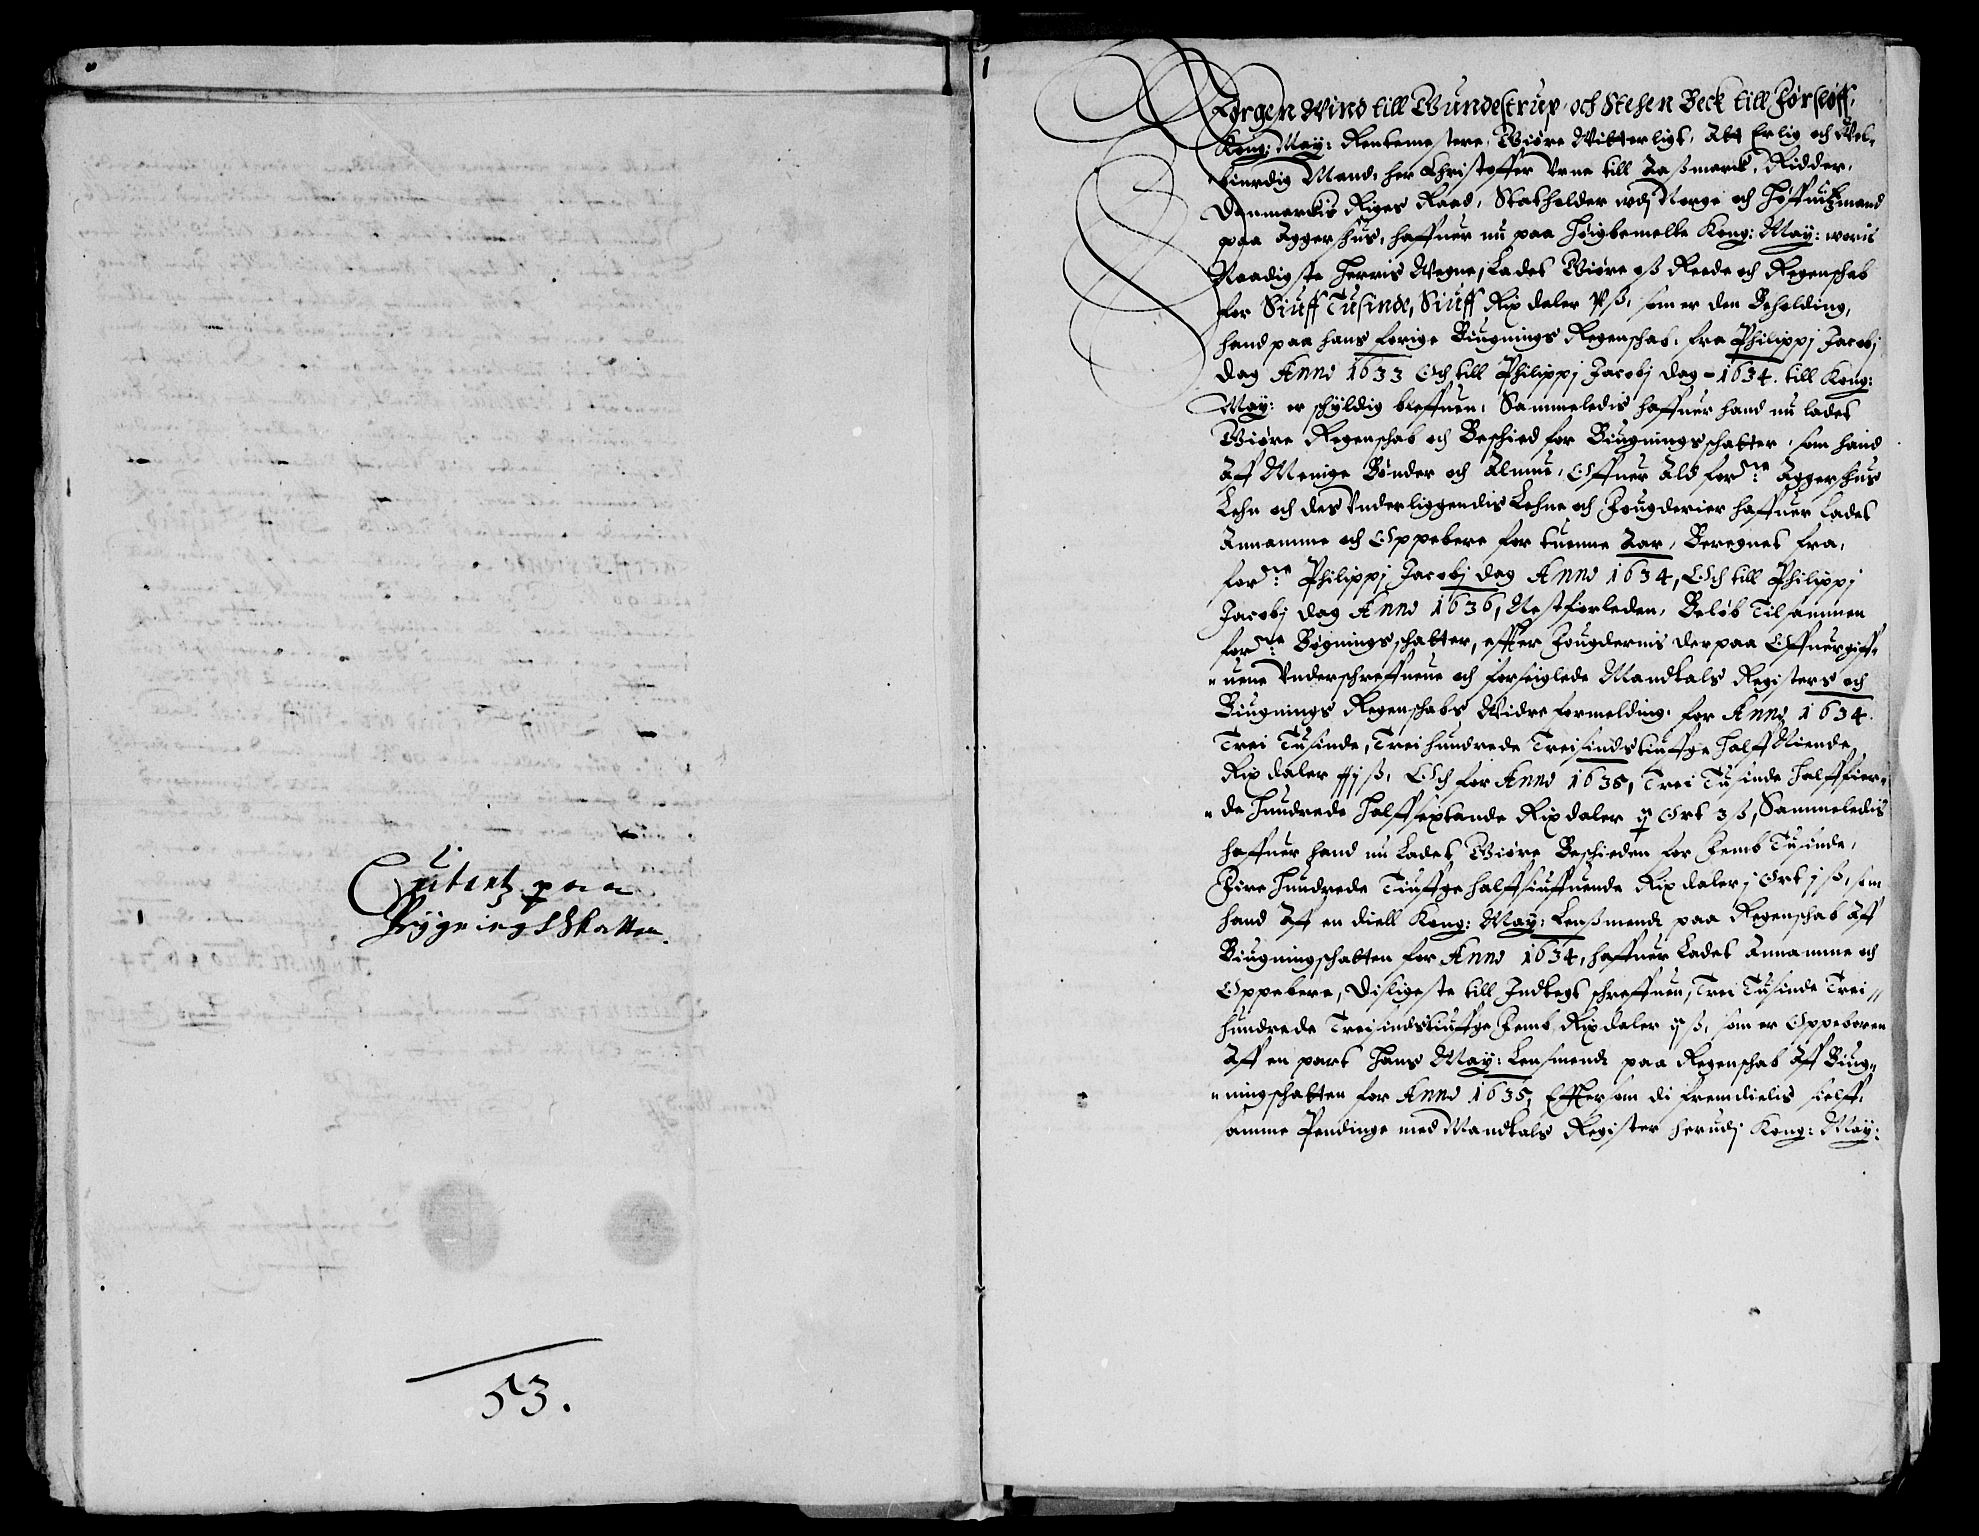 Quitantz paa
Bygnings Skatten.
53.
Jørgen Wind till Gundestrup, och Stehen Beck till Førsløff,
Kong: May: Rentemestere, Giøre Witterligt, Att Erlig och Wel-
biurdig Mand, her Christoffer Vrne till Aaßmarck, Ridder,
Danmarckis Riges Raad, Statholder udj Norge och Høffuitzmand
paa Aggershus, haffuer nu paa Høigbemelte Kong: May: woris
Naadigste Herris Wegne, Ladet Giøre oß Rede och Regenschab
for Siuff Tusinde, Siuff Rixdaler ß, som er den Beholding,
hand paa hans forige Biugnings Regenschab, fra Philippj Jacobj
dag Anno 1633 Och till Philippj Jacobj dag - 1634. till Kong:
May: er schyldig bleffuen, Sammeledis haffuer hand nu ladet
Giøre Regenschab och Beschied for Biugningsschatter, som hand
Aff Menige Bønder och Almue, Offuer Ald forne Aggershus
Lehn och des Vnderliggendis Lehne och Fougderier haffuer Ladet
Annamme och Oppebere for tuenne Aar, Beregnet fra,
forne Philippj Jacobj dag Anno 1634, Och till Philippj
Jacobj dag Anno 1636, Nestforleden, Beløb Tilsammen
forne Bøgningsschatter, effter Fougdernis derpaa Offuergiff-
-uene Vnderschreffuene och forseiglede Mandtals Registers och
Biugnings Regenschabs Widre formelding, for Anno 1634.
Trei Tusinde, Treihundrede Treisindstiuffge Halff Niende
Rixdaler ß, Och for Anno 1635, Trei Tusinde Halfffier-
-de Hundrede Halffsextande Rixdaler Ort 3 ß, Sammeledis
haffuer hand nu Ladet Giøre Beschieden for Femb Tusinde,
Fire Hundrede Tiuffge halffsiuffuende Rixdaler j Ort j ß, som
hand Aff en diell Kong: May: Lenßmend paa Regenschab Aff
Biugningschatten for Anno 1634, haffuer Ladet Annamme och
Oppebere, Disligeste till Indtegt schreffuen, Trei Tusinde Trei
hundrede Treisindstiuffge Femb Rixdaler ß, som er Oppeboren
Aff en part Hans May: Lensmend paa Regenschab Aff Biug-
-ningschatten for Anno 1635, Effter som di fremdielis sielff,
samme Pendinge med Mandtals Register herudj Kong: May: